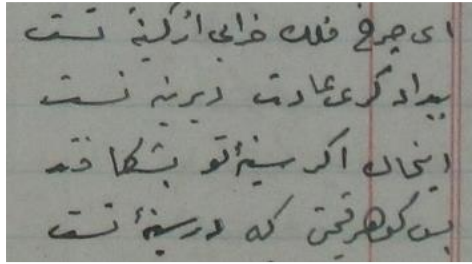 ای چرخ فلک خرابی از کینهٔ تست
بیدادگری عادت دیرینه تست
ایخاک اگر سینهٔ تو بشکافند
بس گوهر قیمتی که در سینهٔ تست